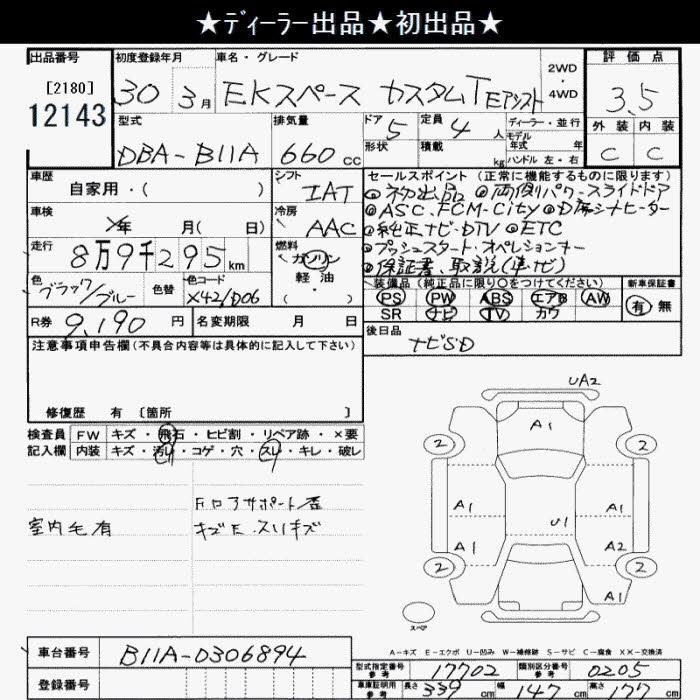 ★ディーラー出品★初出品★
出品番号
[2180]
12143
初度登録年月
30 3月
車名・グレード
EKスペース カスタムT Eアシスト
2WD
・
4WD
評価点
3.5
外装 内装
C C
型式
DBA-B11A
排気量
660 cc
ドア 5
形状
定員 4 人
積載 kg
ディーラー・並行
モデル
年式 年
ハンドル 左・右
車歴
自家用・( )
シフト
IAT
セールスポイント (正常に機能するものに限ります)
◎初出品 ◎両側パワースライドドア
◎ASC.FCM-City ◎D席シートヒーター
◎純正ナビ・DTV ◎ETC
◎プッシュスタート・オペレションキー
◎保証書、取説(車・ナビ)
車検
年 月( 日)
冷房
AAC
走行
8万9千295 km
燃料
ガソリン
軽油
・
( )
色
ブラック/ブルー
色替
色コード
X42/D06
装備品 (純正品に限り○をつけてください)
PS PW ABS エアB AW
SR ナビ TV カワ
新車保証書
有 無
R券 9,190 円
名変期限 月 日
後日品
ナビSD
注意事項申告欄(不具合内容等は具体的に記入して下さい)
修復歴 有 [箇所 ]
検査員
記入欄
FW キズ・飛石・ヒビ割・リペア跡・×要
内装 キズ・汚レ・コゲ・穴・スレ・キレ・破レ
室内毛有
キズE.スリキズ
UA2
A1
2 2
A1 A1
U1
A1 A2
2 2
A1
スペア
A-キズ E-エクボ U-凹み W-補修跡 S-サビ C-腐食 XX-交換済
車台番号
B11A-0306894
登録番号
型式指定番号
参考
17702
類別区分番号
参考
0205
車庫証明用
参考
長さ 339 cm 幅 147 cm 高さ 177 cm